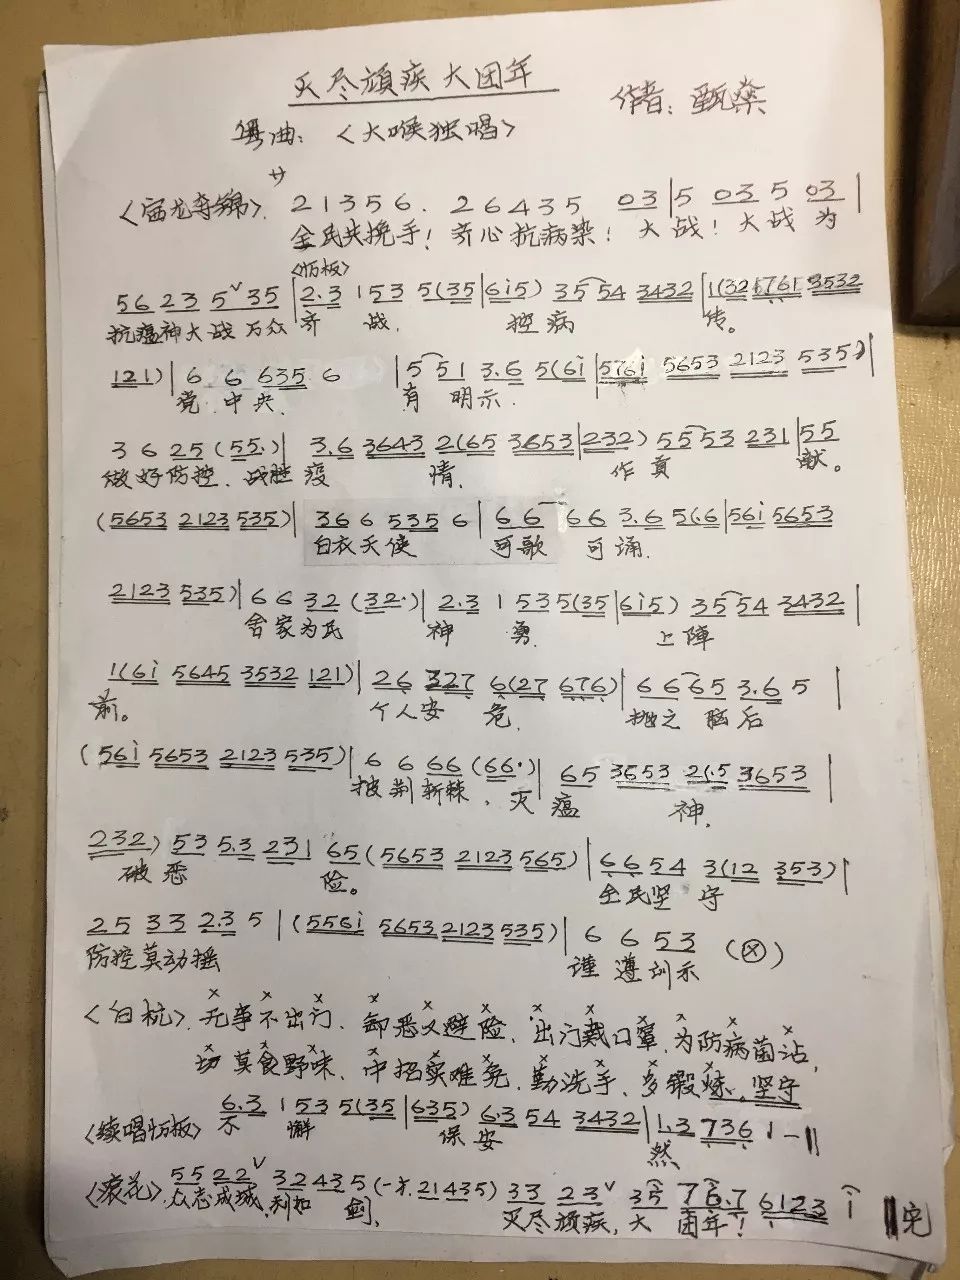 灭尽顽疾大团年
作者：甄燊
粤曲：〈大喉独唱〉
サ
〈宝龙夺锦〉. 2 1 3 5 6 . 2 6 4 3 5 03 | 5 03 5 03 |
全民共挽手！齐心抗病染！大战！大战为
〈七板〉
56 23 5ˇ 35 | 2.3 1 53 5(35 | 6i5) 35 54 3432 | 1(32 1761 3532
抗瘟神大战万众齐 战. 控病 传。
121) | 6 6 635 6 | 5 51 3.6 5(6i | 5761 5653 2123 535) |
党.中央. 有 明示.
3 6 25 (55.) | 3.6 3643 2(65 3653 | 232) 55 53 231 | 55
做好防控、战胜疫 情, 作贡 献。
(5653 2123 535) | 36 6 535 6 | 66 66 3.6 56.6 | 56i 5653
白衣天使 可歌 可 诵.
2123 535) | 6 6 32 (32.) | 2.3 1 535(35 | 6i5) 35 54 3432 |
舍家为民 神 勇. 上阵
1(6i 5645 3532 121) | 26 327 6(27 676) | 66 65 3.6 5 |
前。 个人安 危, 抛之 脑后
(56i 5653 2123 535) | 6 6 66 (66.) | 65 3653 2(.5 3653 |
披荆斩棘、灭 瘟 神,
232) 53 5.3 231 65 (5653 2123 565) | 66 54 3(12 353) |
破恶 险。 全民坚 守
25 33 2.3 5 | (556i 5653 2123 535) | 6 6 53 (⊗)
防控莫动摇 谨遵训示
〈白杬〉. 无事不出门、卸恶又避险, 出门戴口罩, 为防病菌沾,
切莫食野味、中招实难免, 勤洗手、多锻炼, 坚守
〈续唱七板〉 6.3 1 53 5(35 | 635) 6.3 54 3432 | 1.3 736 1 - ‖
不 懈 保 安 然
〈滚花〉. 55 22ˇ 32 435 (一才. 21435) 33 23ˇ 35 76.7 6123 i ‖完
众志成城, 利如 剑, 灭尽顽疾, 大 团年！